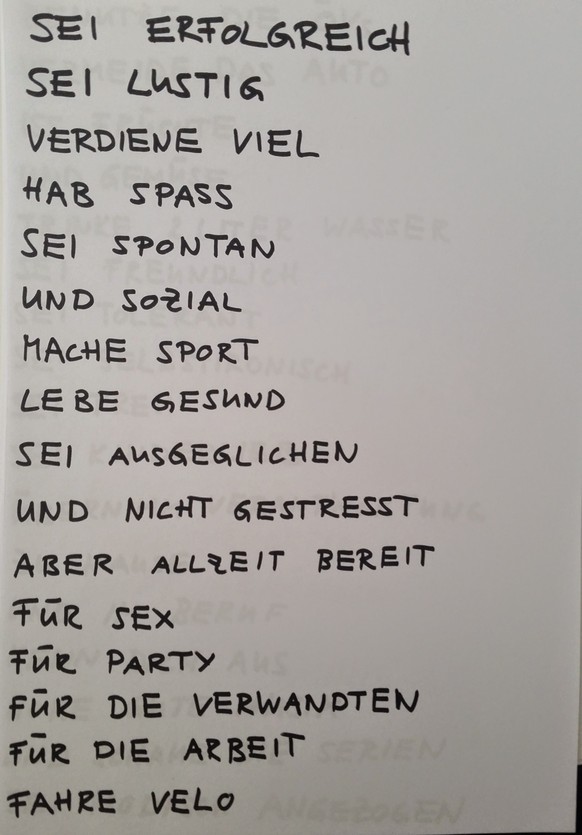 SEI ERFOLGREICH
SEI LUSTIG
VERDIENE VIEL
HAB SPASS
SEI SPONTAN
UND SOZIAL
MACHE SPORT
LEBE GESUND
SEI AUSGEGLICHEN
UND NICHT GESTRESST
ABER ALLZEIT BEREIT
FÜR SEX
FÜR PARTY
FÜR DIE VERWANDTEN
FÜR DIE ARBEIT
FAHRE VELO